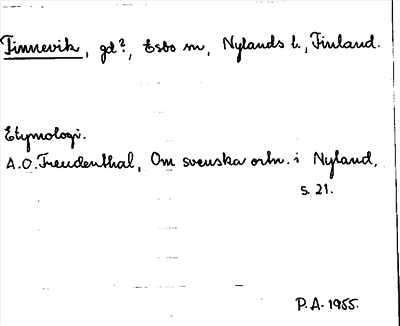 Finnevik, gd?, Esbo sn, Nylands l., Finland.
Etymologi.
A.O. Freudenthal, Om svenska ortn. i Nyland,
s. 21.
P.A. 1955.